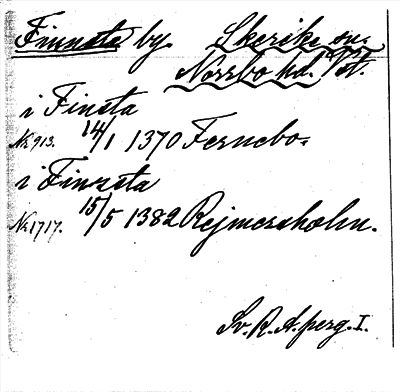 Finnsta by Skerike sn.
Norrbo hd. Vst.
i Finsta
Nr 913. 14/1 1370 Fernebo.
i Finnsta
Nr 1717. 15/5 1382 Rejmersholm.
Sv. R. A. perg. I.